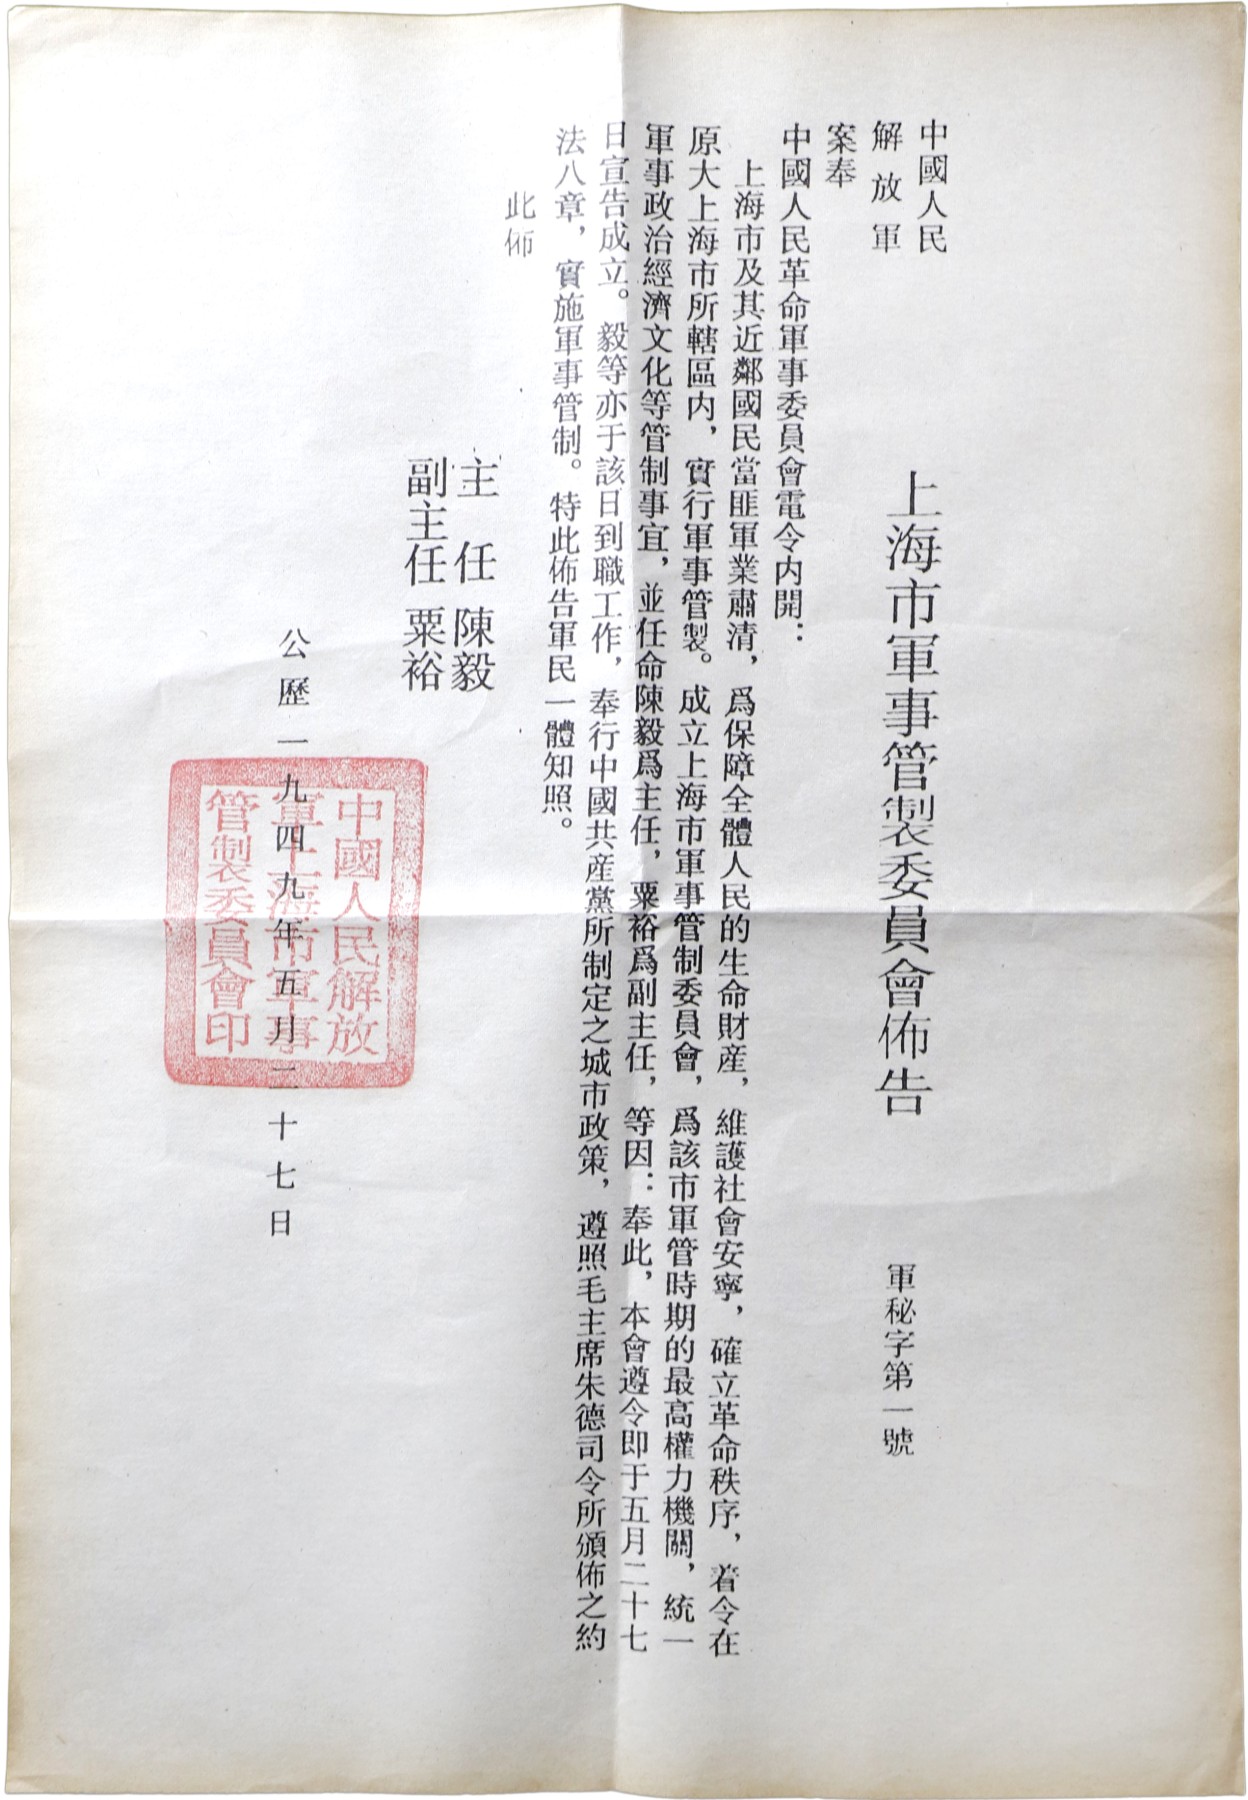 中國人民
解放軍
上海市軍事管製委員會佈告
軍秘字第一號
案奉
中國人民革命軍事委員會電令内開：
上海市及其近鄰國民當匪軍業肅清，爲保障全體人民的生命財産，維護社會安寧，確立革命秩序，着令在
原大上海市所轄區内，實行軍事管製。成立上海市軍事管制委員會，爲該市軍管時期的最高權力機關，統一
軍事政治經濟文化等管制事宜，並任命陳毅爲主任，粟裕爲副主任，等因：奉此，本會遵令即于五月二十七
日宣告成立。毅等亦于該日到職工作，奉行中國共産黨所制定之城市政策，遵照毛主席朱德司令所頒佈之約
法八章，實施軍事管制。特此佈告軍民一體知照。
此佈
主任 陳毅
副主任 粟裕
公歷一九四九年五月二十七日
中國人民解放
軍上海市軍事
管製委員會印